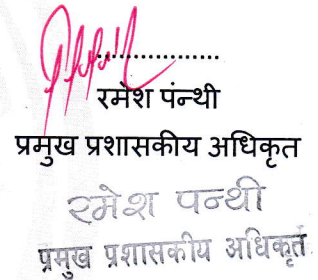 ....................
रमेश पंन्थी
प्रमुख प्रशासकीय अधिकृत
रमेश पन्थी
प्रमुख प्रशासकीय अधिकृत